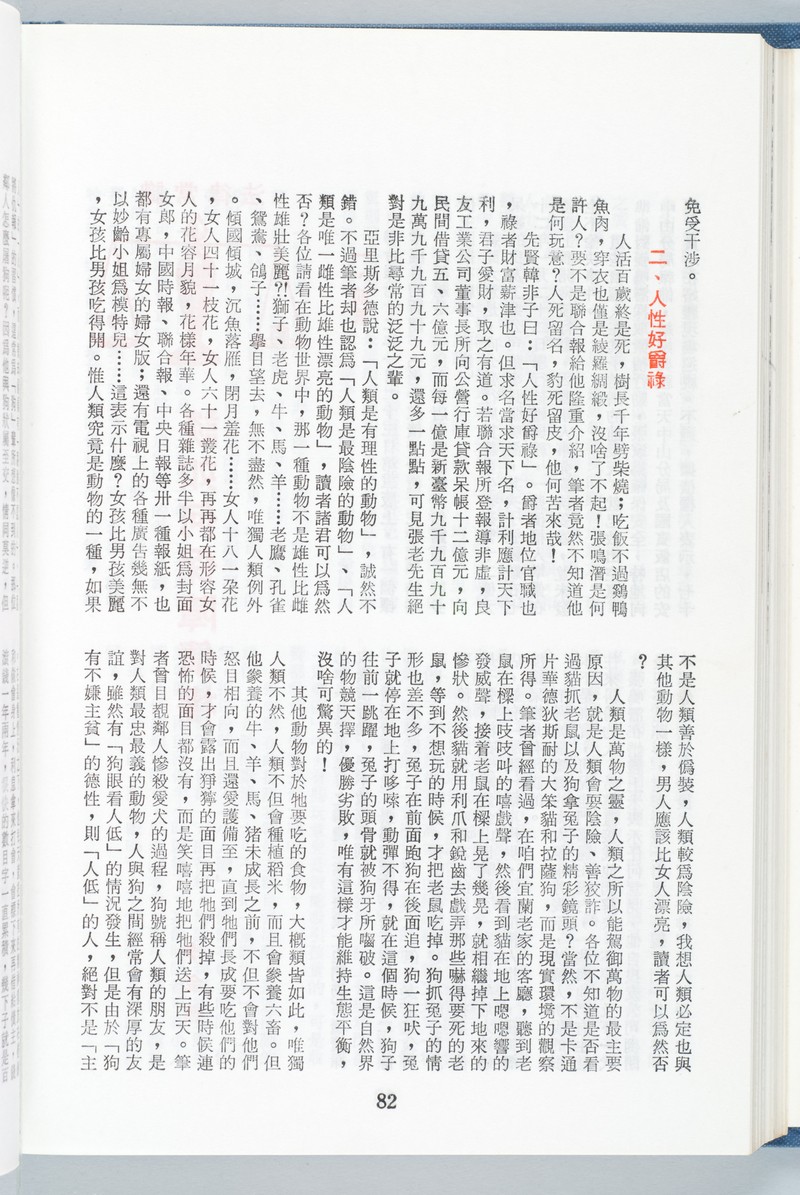 免受干涉。
二、人性好爵祿
人活百歲終是死，樹長千年劈柴燒；吃飯不過鷄鴨
魚肉，穿衣也僅是綾羅綢緞，沒啥了不起！張鳴潛是何
許人？要不是聯合報給他隆重介紹，筆者竟然不知道他
是何玩意？人死留名，豹死留皮，他何苦來哉！
先賢韓非子曰：「人性好爵祿」。爵者地位官職也
，祿者財富薪津也。但求名當求天下名，計利應計天下
利，君子愛財，取之有道。若聯合報所登報導非虛，良
友工業公司董事長所向公營行庫貸款呆帳十二億元，向
民間借貸五、六億元，而每一億是新臺幣九千九百九十
九萬九千九百九十九元，還多一點點，可見張老先生絕
對是非比尋常的泛泛之輩。
亞里斯多德說：「人類是有理性的動物」，誠然不
錯。不過筆者却也認爲「人類是最陰險的動物」、「人
類是唯一雌性比雄性漂亮的動物」，讀者諸君可以爲然
否？各位請看在動物世界中，那一種動物不是雄性比雌
性雄壯美麗？！獅子、老虎、牛、馬、羊……老鷹、孔雀
、鴛鴦、鴿子……擧目望去，無不盡然，唯獨人類例外
。傾國傾城，沉魚落雁，閉月羞花……女人十八一朶花
，女人四十一枝花，女人六十一叢花，再再都在形容女
人的花容月貌，花樣年華。各種雜誌多半以小姐爲封面
女郎，中國時報、聯合報、中央日報等卅一種報紙，也
都有專屬婦女的婦女版；還有電視上的各種廣告幾無不
以妙齡小姐爲模特兒……這表示什麼？女孩比男孩美麗
，女孩比男孩吃得開。惟人類究竟是動物的一種，如果
不是人類善於僞裝，人類較爲陰險，我想人類必定也與
其他動物一樣，男人應該比女人漂亮，讀者可以爲然否
？
人類是萬物之靈，人類之所以能駕御萬物的最主要
原因，就是人類會耍陰險、善狡詐。各位不知道是否看
過貓抓老鼠以及狗拿兔子的精彩鏡頭？當然，不是卡通
片華德狄斯耐的大笨貓和拉薩狗，而是現實環境的觀察
所得。筆者曾經看過，在咱們宜蘭老家的客廳，聽到老
鼠在樑上吱吱叫的嘻戲聲，然後看到貓在地上嗯嗯響的
發威聲，接着老鼠在樑上晃了幾晃，就相繼掉下地來的
慘狀。然後貓就用利爪和銳齒去戲弄那些嚇得要死的老
鼠，等到不想玩的時候，才把老鼠吃掉。狗抓兔子的情
形也差不多，兔子在前面跑狗在後面追，狗一狂吠，兔
子就停在地上打哆嗦，動彈不得，就在這個時候，狗子
往前一跳躍，兔子的頭骨就被狗牙所嚙破。這是自然界
的物競天擇，優勝劣敗，唯有這樣才能維持生態平衡，
沒啥可驚異的！
其他動物對於牠要吃的食物，大概類皆如此，唯獨
人類不然，人類不但會種植稻米，而且會豢養六畜。但
他豢養的牛、羊、馬、猪未成長之前，不但不會對他們
怒目相向，而且還愛護備至，直到牠們長成要吃他們的
時候，才會露出猙獰的面目再把牠們殺掉，有些時候連
恐怖的面目都沒有，而是笑嘻嘻地把牠們送上西天。筆
者曾目覩鄰人慘殺愛犬的過程，狗號稱人類的朋友，是
對人類最忠最義的動物，人與狗之間經常會有深厚的友
誼，雖然有「狗眼看人低」的情況發生，但是由於「狗
有不嫌主貧」的德性，則「人低」的人，絕對不是「主
82